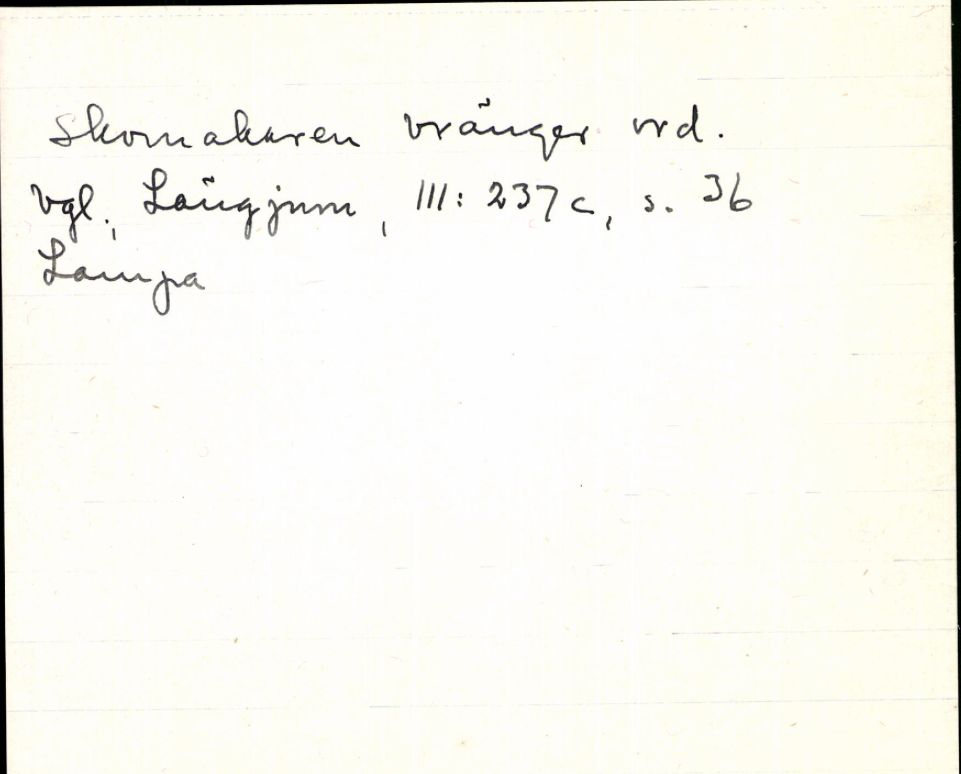 Skomakaren vränger vrd.
Vgl., Längjum, III: 237c, s. 36
Lampa